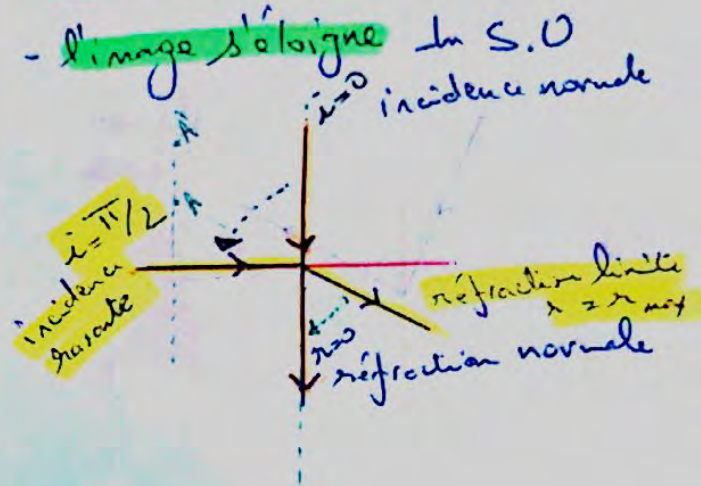 - l'image s'éloigne du S.O
i=0
incidence normale
A
A
i=π/2
incidence
rasante
réfraction limite
r = r max
r=0
réfraction normale